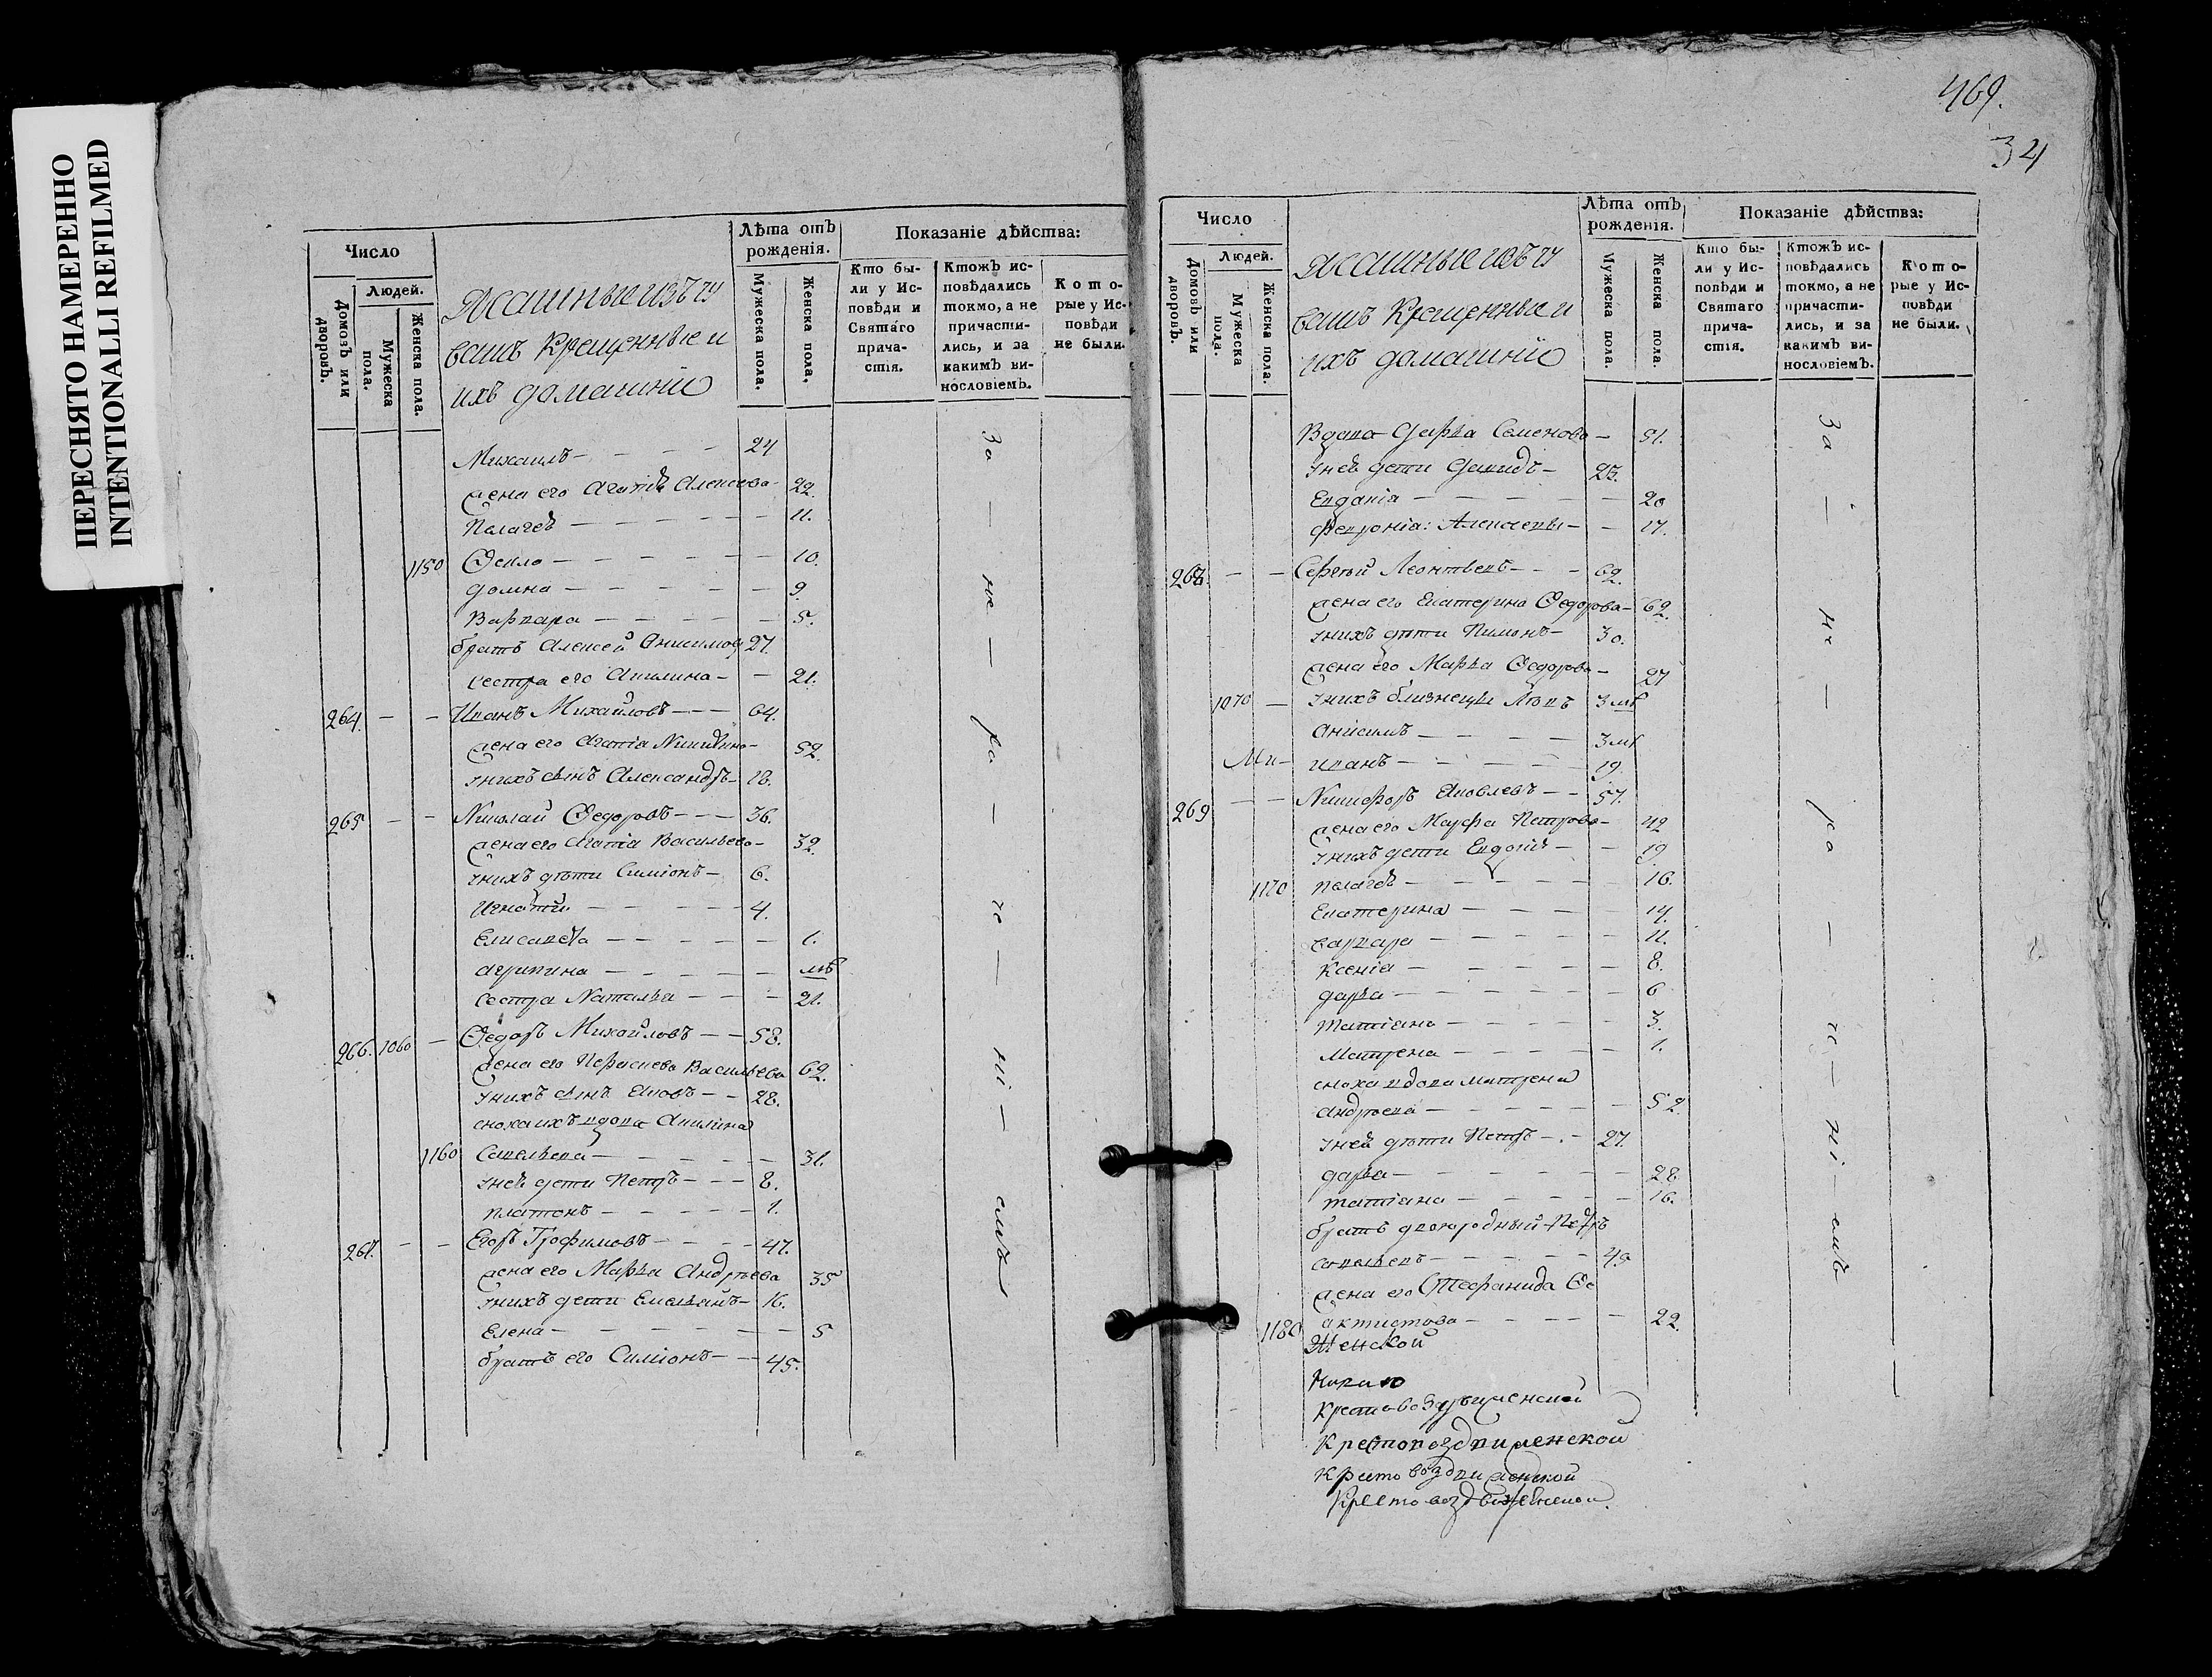 ПЕРЕСНЯТО НАМЕРЕННО
INTENTIONALLI REFILMED
Число
Домовъ или дворовъ.
Людей.
Мужеска пола.
Женска пола.
Ясашные изъ чу
вашъ крещенные и
ихъ домашніе
Лѣта отъ рожденія.
Мужеска пола.
Женска пола.
Показаніе дѣйства:
Кто бы-
ли у Ис-
повѣди и
Святаго
прича-
стія.
Ктожъ ис-
повѣдались
токмо, а не
причасти-
лись, и за
какимъ ви-
нословіемъ.
Кото-
рые у Ис-
повѣди
не были.
Михаилъ - - - - 24
жена его Агатія Алексеева - 22.
Пелагея - - - - - 11.
1150 Ѳекла - - - - - 10.
домна - - - - - 9.
Варвара - - - - - 5.
братъ Алексей Онисимов 27.
сестра его Акилина - - 21.
264. - - Иванъ Михайловъ - - - 64.
жена его Агатіа - 52.
унихъ сынъ Александръ - 18.
265 - - Николай Ѳедоровъ - - - 36.
жена его Агатіа Васильева - 32.
унихъ дѣти Симіонъ - 6.
Игнатій - - - - 4.
Елисавета - - - - - 1.
агрипина - - - - - мѣ
сестра Наталья - - - 21.
266. 1060 - Ѳедоръ Михайловъ - - 58.
жена его Параскева Васильева 62.
унихъ сынъ Яковъ - - 28.
сноха ихъ вдова Акилина
1160 Савельева - - - - - 31.
уней дети Петръ - - - 8.
платонъ - - - - - 1.
267. - - Егоръ Трофимовъ - - - 47.
жена его Марья Андреева 35
унихъ дети Емельянъ - 16.
Елена - - - - - - 5
братъ его Симіонъ - - 45.
За - не - ра - че - ні - емъ
469.
34
Число
Домовъ или дворовъ.
Людей.
Мужеска пола.
Женска пола.
Ясашные изъ чу
вашъ крещенные и
ихъ домашніе
Лѣта отъ рожденія.
Мужеска пола.
Женска пола.
Показаніе дѣйства:
Кто бы-
ли у Ис-
повѣди и
Святаго
прича-
стія.
Ктожъ ис-
повѣдались
токмо, а не
причасти-
лись, и за
какимъ ви-
нословіемъ.
Кото-
рые у Ис-
повѣди
не были.
Вдова Дарья Семенова - 51.
уней дети Давидъ - 23.
Евдакія - - - - - 20
Февроніа: Алексеевы - - 17.
268. - - Сергей Леонтьевъ - - - 62.
жена его Екатерина Ѳедорова - 62.
унихъ дѣти Пимонъ - 30.
жена его Марья Ѳедорова - 27
1070 - унихъ близнецы Левъ 3 мѣ
Анисимъ - - - - 3 мѣ
иванъ - - - - - 19.
269 - - Никифоръ Яковлевъ - - 57.
жена его Марфа Петрова - 42
унихъ дети Евдокія - - 19
1170 пелагея - - - - - 16.
Екатерина - - - - - 14.
варвара - - - - - 11.
Ксеніа - - - - - 8.
дарья - - - - - 6
татіана - - - - - 3.
Матрена - - - - - 1.
сноха вдова матрена
андреева - - - - - 52.
уней дѣти Петръ - - 27.
дарья - - - - - 28
татіана - - - - - 16.
братъ двоюродный Петръ
савельевъ - - - - - 45
жена его Стефанида Ѳе
1180 актистова - - - - - 22.
Женской
Крестовоздвиженской
Крестовоздвиженской
Крестовоздвиженской
Крестовоздвиженской.
За - не - ра - че - ні - емъ